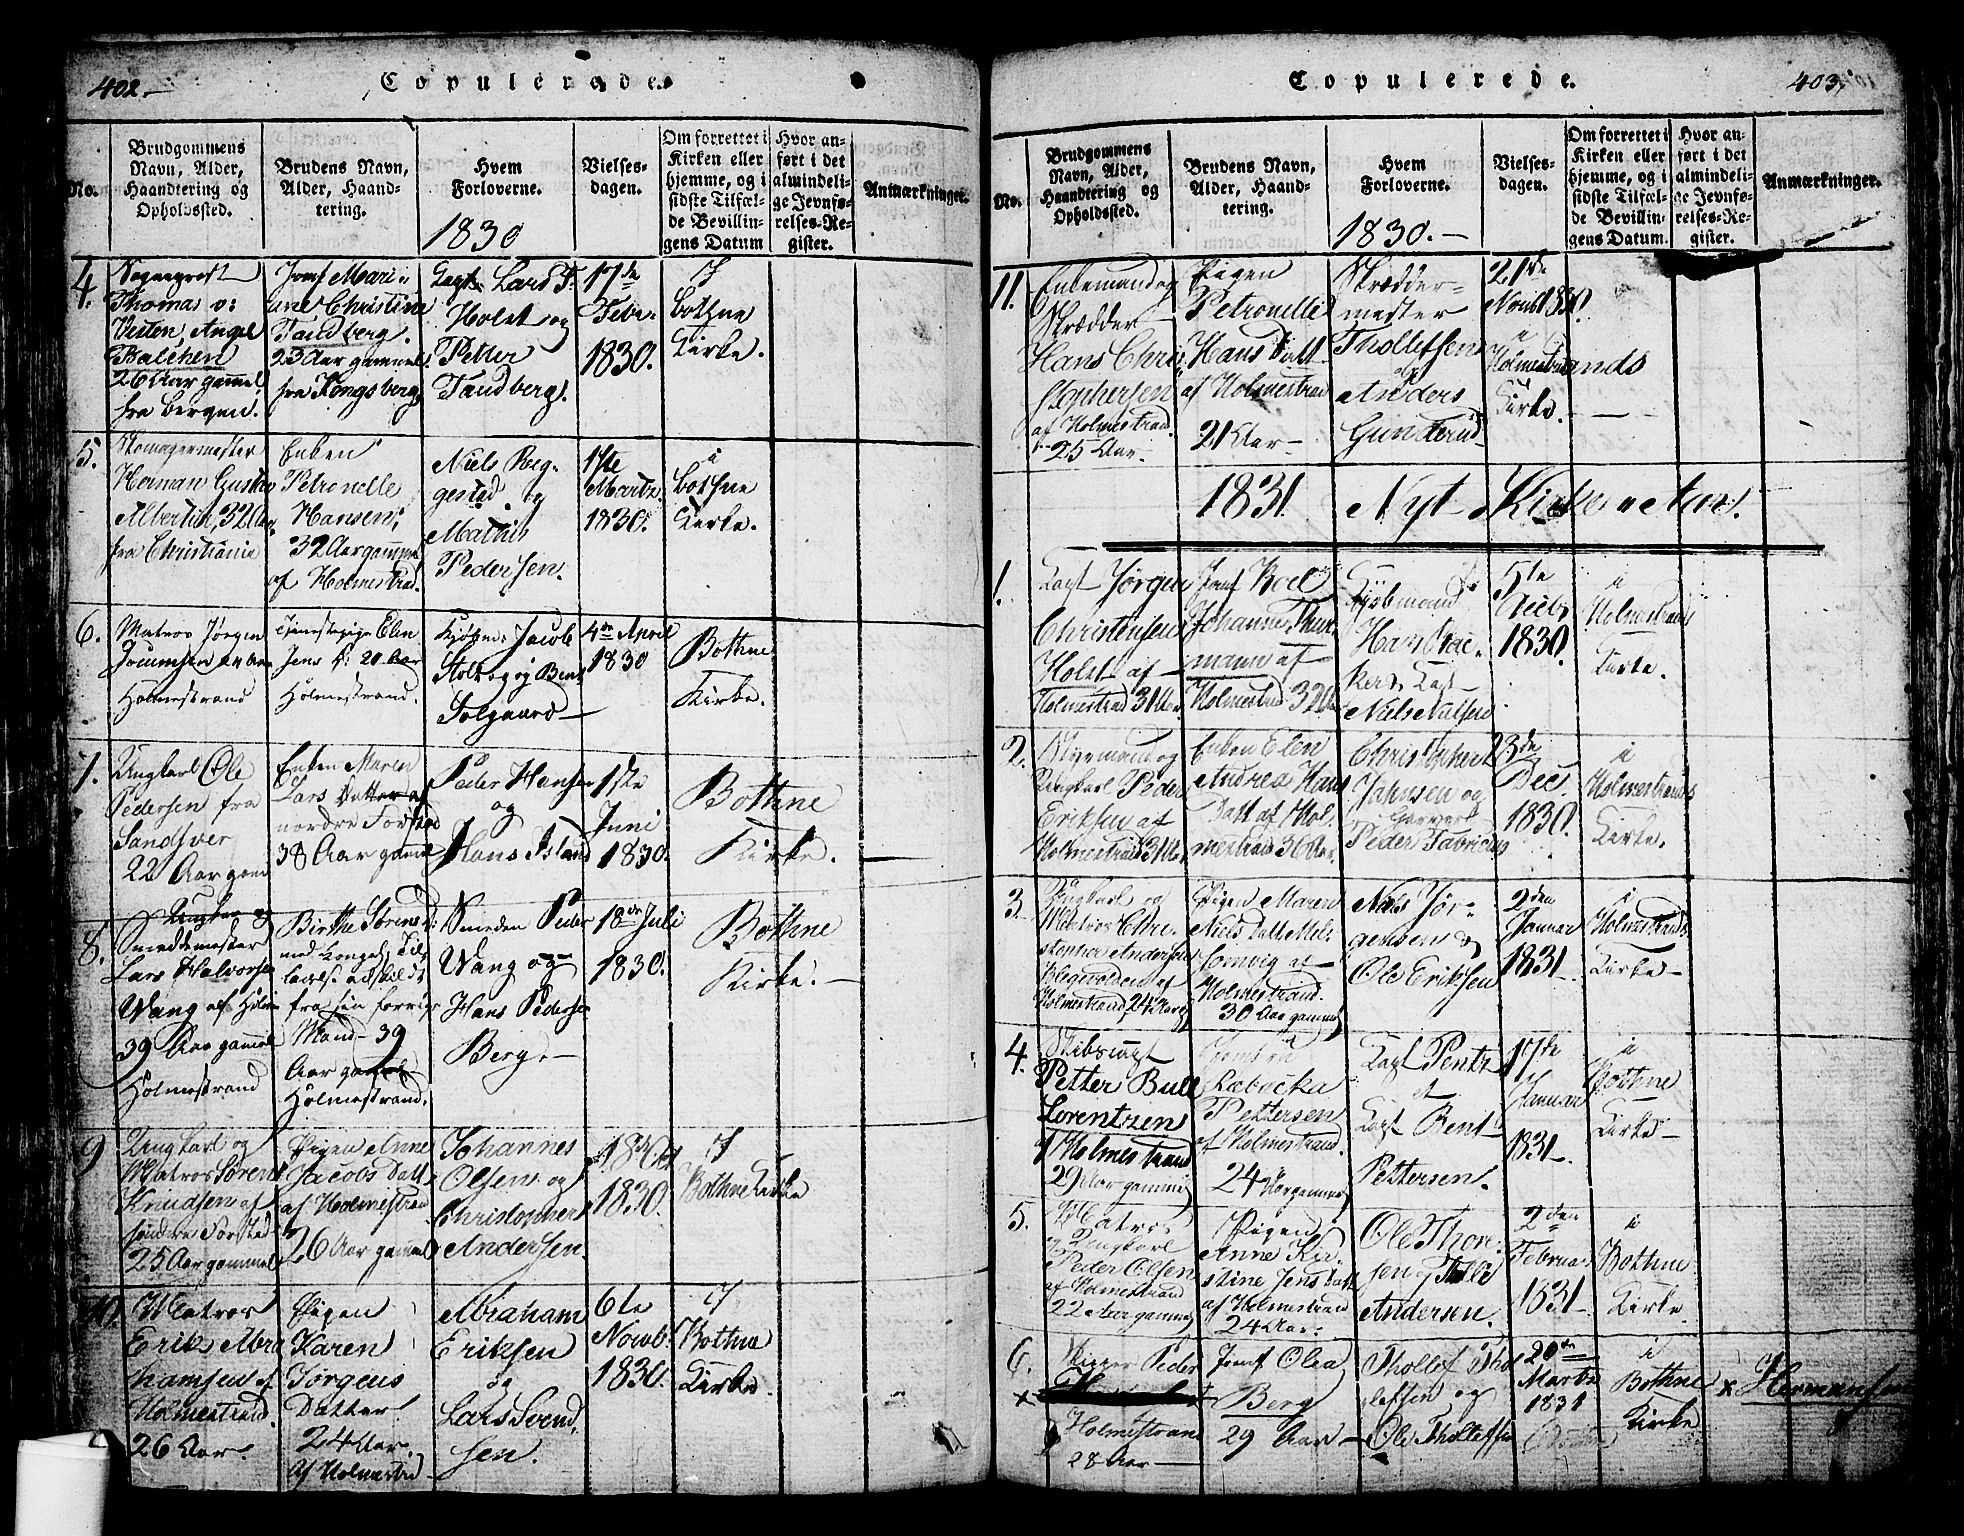 402.
Copulerede.
No.
Brudgommens
Navn, Alder,
Haandtering og
Opholdssted.
Brudens Navn,
Alder, Haand-
tering.
Hvem
Forloverne.
1830
Vielses-
dagen.
Om forrettet i
Kirken eller
hjemme, og i
sidste Tilfæl-
de Bevillin-
gens Datum
Hvor an-
ført i det
almindeli-
ge Jevnfø-
relses-Re-
gister.
Anmærkninger.
4.
Thomas v:
Westen, Angel
Balchen
26 Aar gammel,
fra Bergen.
Jomf Mari-
ane Christine
Sandberg.
23 Aar gammel
fra Kongsberg
Lars F.
Holst og
Petter
Sandberg.
17de
Febr.
1830.
I
Bothne
Kirke.
5.
Skomagermester
Herman Gustav
Albertin, 32 Aar,
fra Christiania
Enken
Petronelle
Hansen,
32 Aar gammel
af Holmestrand.
Niels Reg-
gestad og
Mathis
Pedersen.
1ste
Martz
1830.
i
Bothne
Kirke.
6.
Matros Jørgen
Holmestrand
Tjenestepige Elen
Jens D: 20 Aar
Holmestrand.
Jacob
Solgaard
4de April
1830
Bothne
Kirke.
7.
Ungkarl Ole
Pedersen fra
Sandsver
22 Aar gaml
Enken Maren
Lars Datter af
nordre
38 Aar gaml
Peder Hansen
og
Hans Island
1ste
Juni
1830.
Bothne
Kirke.
8.
Ungkar og
Smeddemester
Lars Halvorsen
Wang af
39 Aar gamel
Holmestrand
Birthe Sørens D:
fra sin forrige
Mand - 39
Aar gamel
Holmestrand.
Smeden Peder
Wang og
Hans Pedersen
Berg.
18de Juli
1830.
Bothne
Kirke.
9
Ungkarl og
Matros Søren
Knudsen af
søndre
25 Aar gammel
Pigen Anne
Jacobs Datt
af Holmestrand
26 Aar gammel
Johannes
Olsen og
Christopher
Andersen.
1830.
I
Bothne Kirke
10.
Matros
Erik Abra
hamsen af
Holmestrand
26 Aar.
Pigen
Karen
Jørgens
Datter
24 Aar.
af Holmestrand
Abraham
Eriksen
og
Lars Svend
sen.
6te
Novbr
1830.
I
Bothne
Kirke.
Copulerede.
403.
No.
Brudgommens
Navn, Alder,
Haandtering og
Opholdssted.
Brudens Navn,
Alder, Haand-
tering.
Hvem
Forloverne.
1830.
Vielses-
dagen.
Om forrettet i
Kirken eller
hjemme, og i
sidste Tilfæl-
de Bevillin-
gens Datum.
Hvor an-
ført i det
almindeli-
ge Jevnfø-
relses-Re-
gister.
Anmærkninger.
11.
Enkemand og
Skrædder
Hans Chri
stophersen
af Holmestrand
25 Aar.
Pigen
Petronelle
Hans Datt
af Holmestrand
21 Aar
Skrædder-
mester
Thollefsen
og
Anders
Gunderud
21de
Novbr 1830.
i
Holmestrands
Kirke.
1831 Nyt Kirke Aar.
1.
Capt Jørgen
Christensen
Holst af
Holmestrand 31 Aar.
Jomf Boel
Johanne Thur-
mann af
Holmestrand 32 Aar
Kjøbmand
Hans Bac-
ker, Capt
Niels Nilsen
5te
Decbr
1830.
i
Holmestrands
Kirke.
2.
Ungkarl Peder
Eriksen af
Holmestrand 31 Aar.
Enken Elen
Andrea Hans
Datt af Hol-
mestrand 36 Aar.
Christopher
Jahnsen og
Garver
Peder Fabricius
23de
Dec
1830.
i
Holmestrands
Kirke.
3.
Ungkarl og
Matros Chri-
stopher Andersen
af
Holmestrand 24 Aar
Pigen Maren
Niels Datt Mel-
somvig af
Holmestrand.
30 Aar gammel
Niels Jør-
gensen &
Ole Eriksen
2den
Januar
1831
i
Holmestrands
Kirke
4.
Skibscapt
Petter Bull
Lorentzen
af Holmestrand
29 Aar gammel
Jomfru
Rebecka
Pettersen
af Holmestrand.
24 Aar gammel
Capt Pentz
et
Capt Bent
Pettersen.
17de
Januar
1831.
i
Bothne
Kirke
5.
Matros
og Ungkarl
Peder Olsen
af Holmestrand
22 Aar gammel
Pigen
Anne Kir
stine Jens Datt
af Holmestrand
24 Aar.
Ole Thor-
sen,
Andersen.
2den
Februar
1831
i
Bothne
Kirke
6.
x
Peder
Holmestrand
28 Aar
Jomf Olea
Berg
29 Aar
Thollef Thol
lefsen og
Ole Thollefsen
20de
Martz
1831
i
Bothne
Kirke
x Hermansen